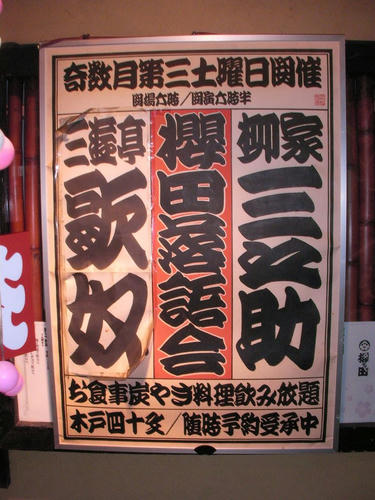 奇数月第三土曜日開催
開場六時／開演六時半
柳家三之助
櫻田落語会
三遊亭歌奴
お食事炭やき料理飲み放題
木戸四十文／随時予約受承中